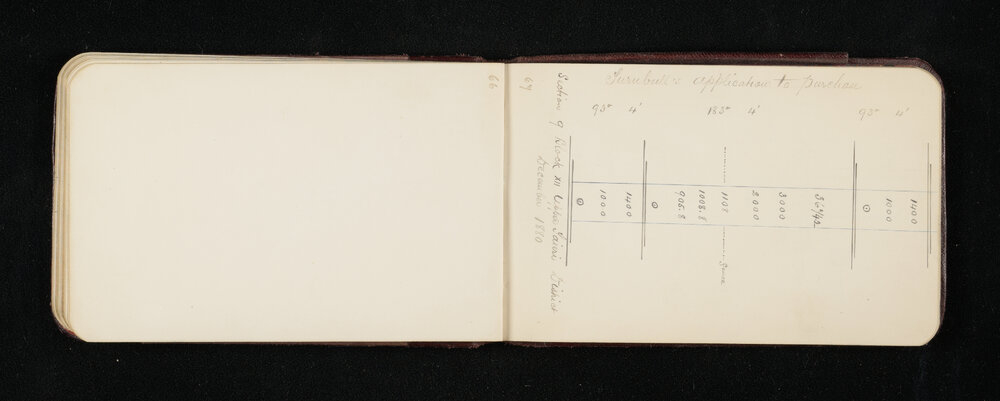 66
67
Turnbull's application to purchase
Section 9 Block XII Upper Taieri District
December 1880
93° 4'
183° 4'
93° 4'
1000
1400
906.8
1008.8
1108
2000
3000
1000
1400
fence